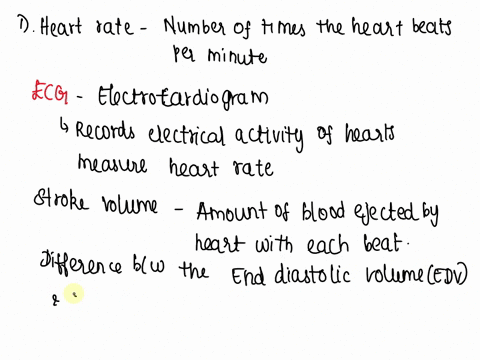 1). Heart rate - Number of times the heart beats
per minute
ECG - Electrocardiogram
↳ Records electrical activity of hearts
measure heart rate
Stroke volume - Amount of blood ejected by
heart with each beat.
Difference b/w the End diastolic volume (EDV)
&